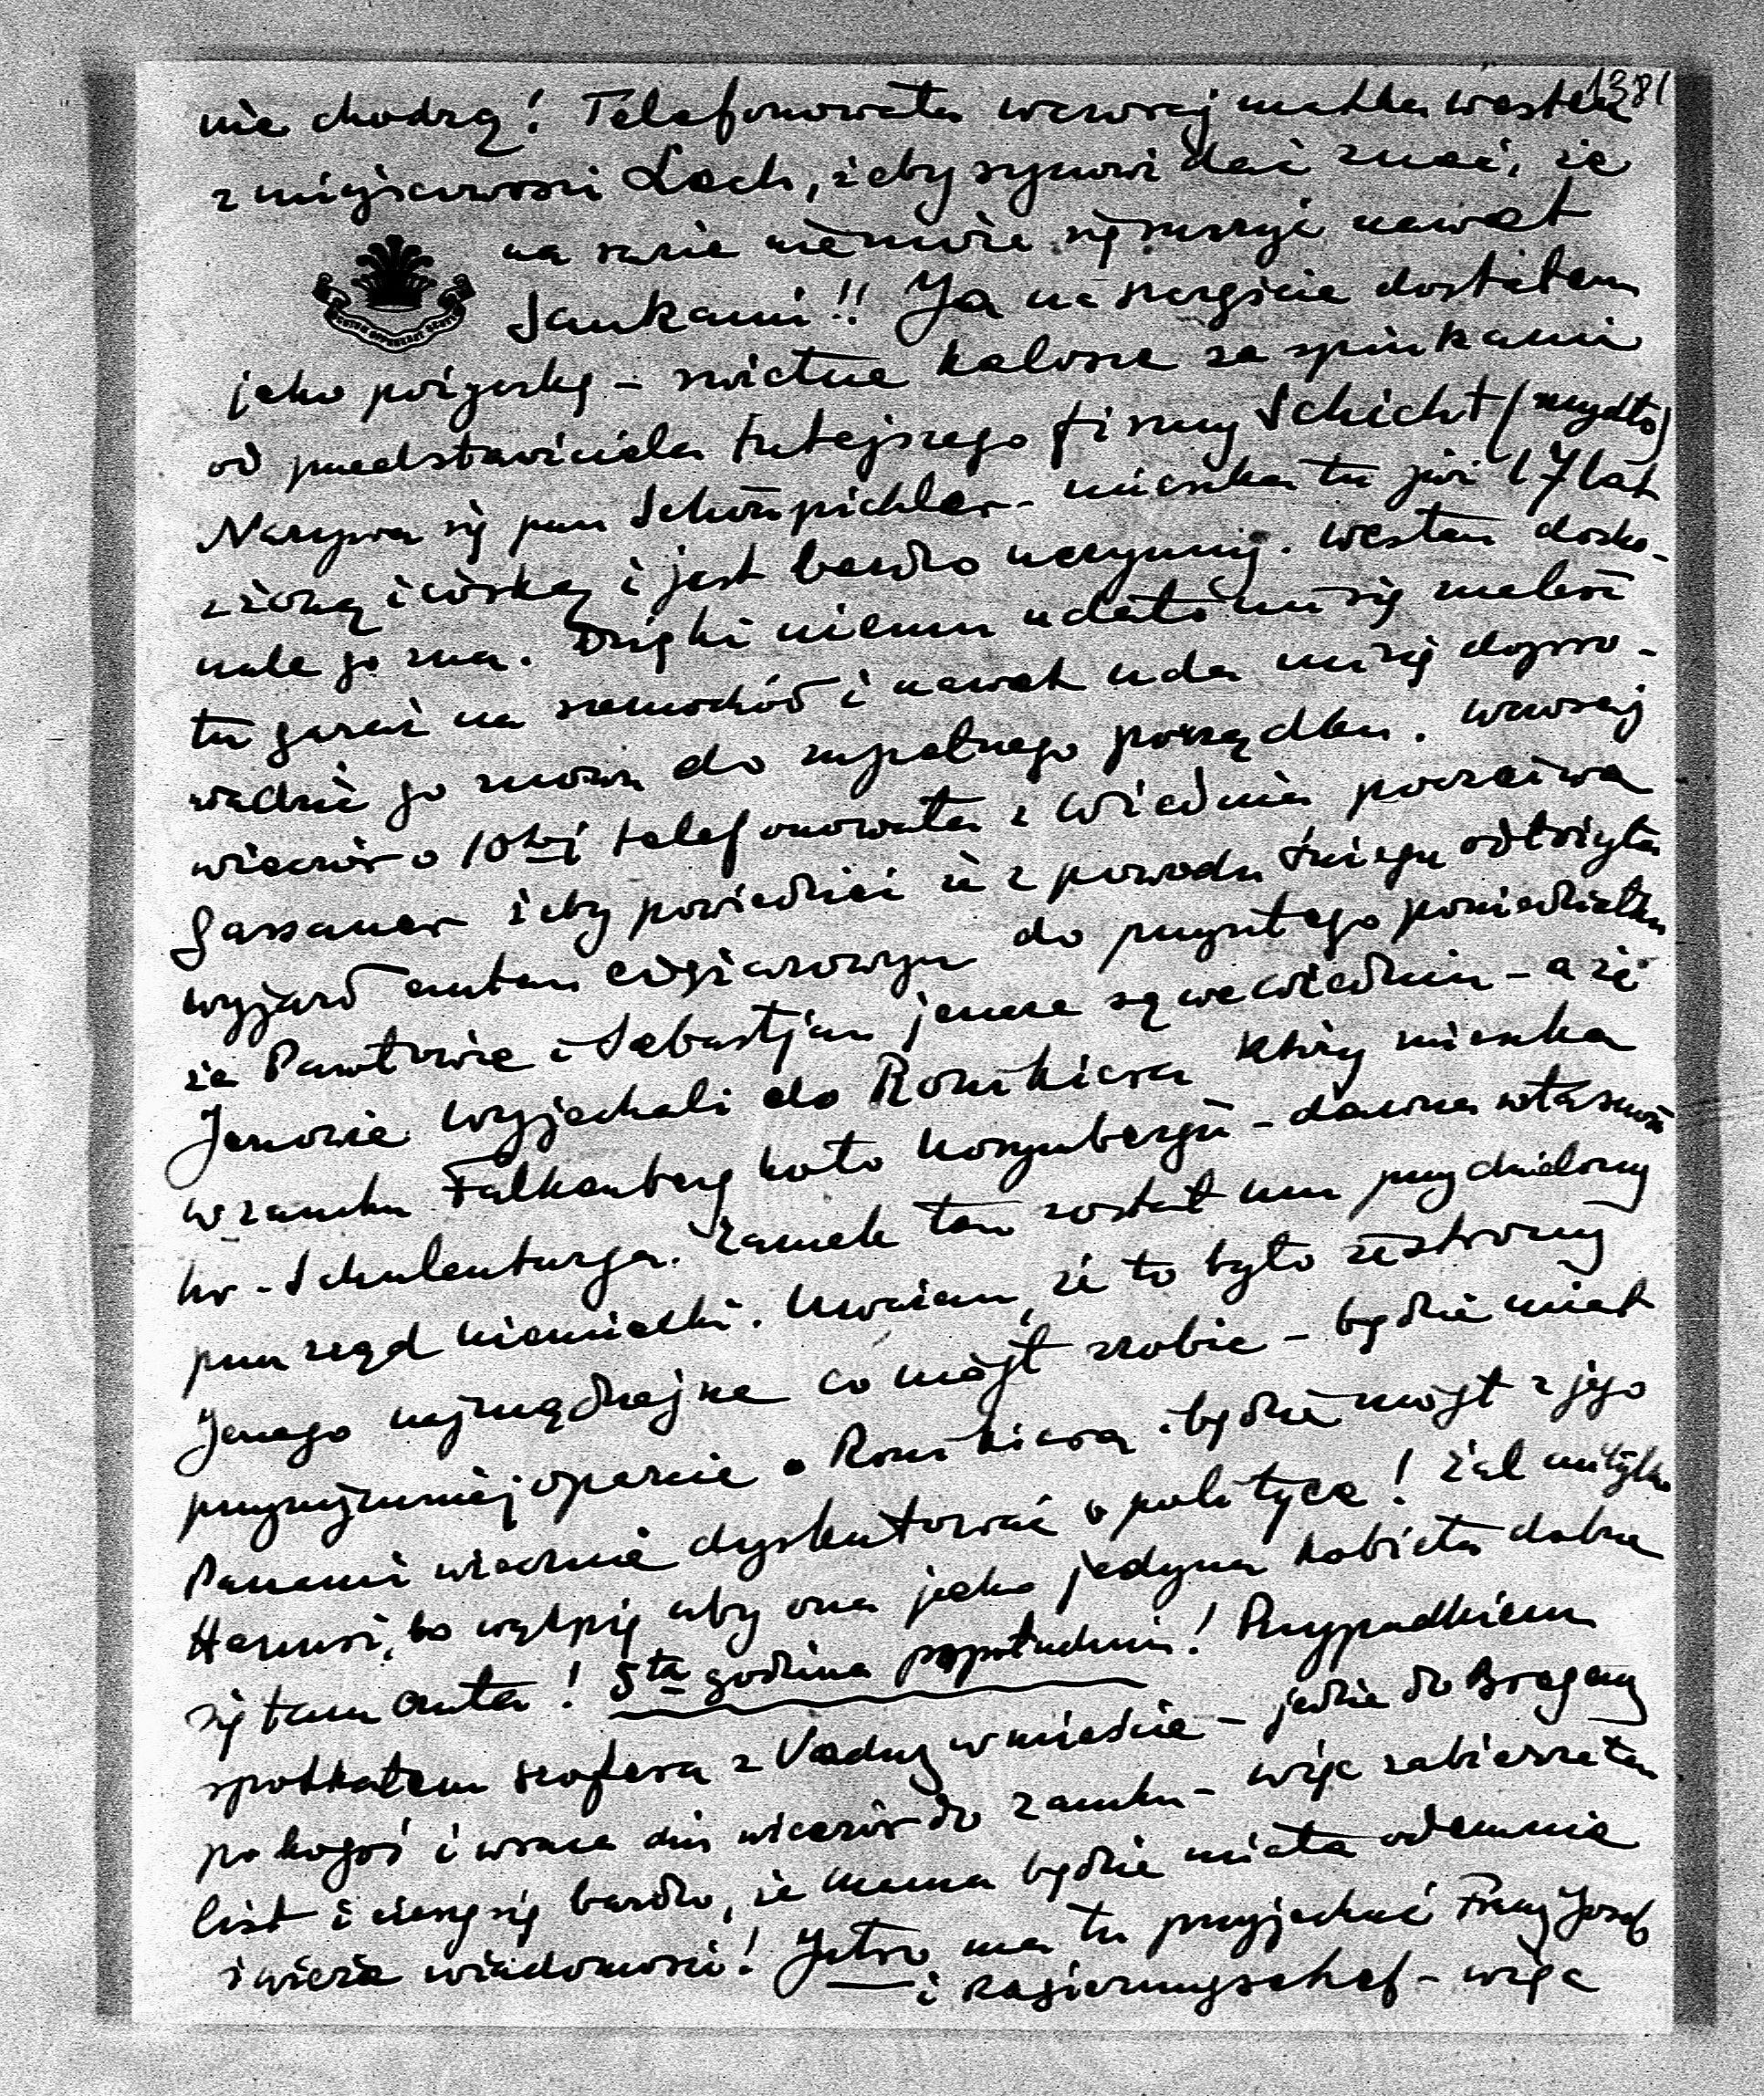 1381
nie chodzą! Telefonowała wczoraj matka Westen
z miejscowości Lech, żeby synowi dać znać, że
na razie nie może się ruszyć nawet
Sankami!! Ja na szczęście dostałem
jako pożyczkę – świetne kalosze ze spinkami
od przedstawiciela tutejszego firmy Schicht (mydło)
Nazywa się pan Schönpichler – mieszka tu już 17 lat
z żoną i córką i jest bardzo uczynny. Westen dosko-
nale go zna. Dzięki niemu udało mi się znaleźć
tu garaż na samochód i nawet uda mi się dopro-
wadzić go znowu do zupełnego porządku. Wczoraj
wieczór o 10tej telefonowała z Wiednia poczciwa
Gassauer żeby powiedzieć że z powodu śniegu odłożyła
wyjazd autem ciężarowym do przyszłego poniedziałku
że Pawłowie i Sebastjan jeszcze są we Wiedniu – a że
Janowie wyjechali do Ronikiera który mieszka
w zamku Falkenberg koło Norymbergii – dawna własność
hr. Schulenburga. Zamek ten został mu przydzielony
przez rząd niemiecki. Uważam, że to było ze strony
Janego najmądrzejsze co mógł zrobić – będzie miał
przynajmniej oparcie o Ronikiera i będzie mógł z jego
Panami wiecznie dyskutować o polityce! Żal mi tylko
Hanusi, bo wątpię aby ona jako jedyna kobieta dobrze
się tam czuła! 5ta godzina popołudniu! Przypadkiem
spotkałem szofera z Vaduz w mieście – jedzie do Bregenz
po kogoś i wraca dziś wieczór do zamku – więc zabierze ten
list i cieszę się bardzo, że Mama będzie miała odemnie
świeże wiadomości! Jutro ma tu przyjechać Franz Josef
i Regierungschef – więc